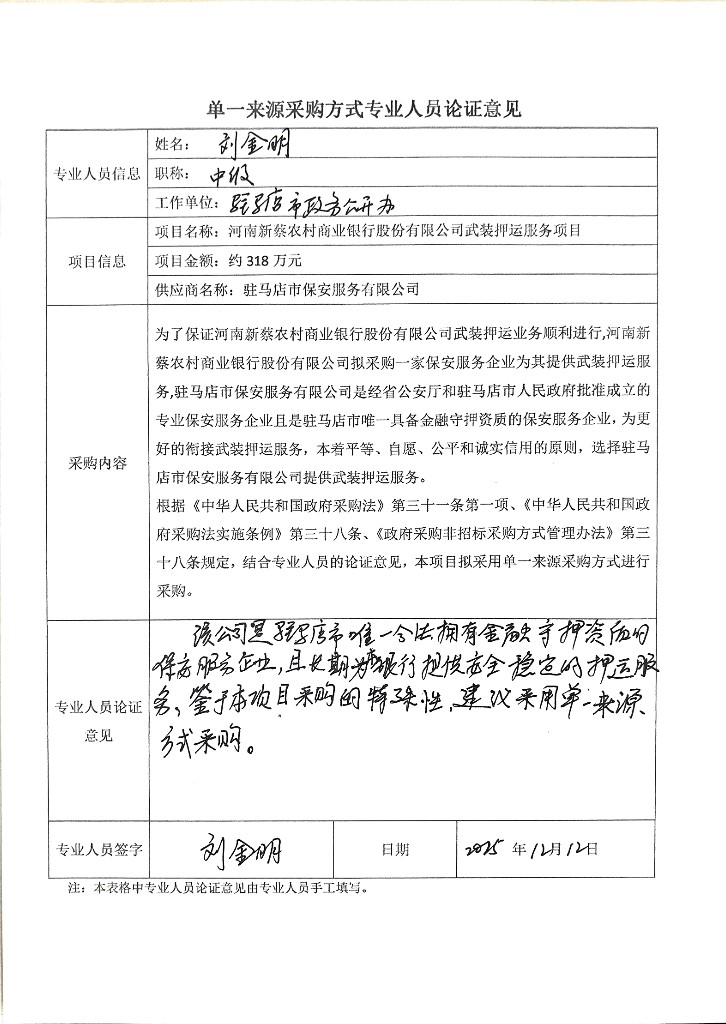 单一来源采购方式专业人员论证意见
专业人员信息
姓名：刘金明
职称：中级
工作单位：驻马店市政务公开办
项目信息
项目名称：河南新蔡农村商业银行股份有限公司武装押运服务项目
项目金额：约 318 万元
供应商名称：驻马店市保安服务有限公司
采购内容
为了保证河南新蔡农村商业银行股份有限公司武装押运业务顺利进行,河南新
蔡农村商业银行股份有限公司拟采购一家保安服务企业为其提供武装押运服
务,驻马店市保安服务有限公司是经省公安厅和驻马店市人民政府批准成立的
专业保安服务企业且是驻马店市唯一具备金融守押资质的保安服务企业，为更
好的衔接武装押运服务，本着平等、自愿、公平和诚实信用的原则，选择驻马
店市保安服务有限公司提供武装押运服务。
根据《中华人民共和国政府采购法》第三十一条第一项、《中华人民共和国政
府采购法实施条例》第三十八条、《政府采购非招标采购方式管理办法》第三
十八条规定，结合专业人员的论证意见，本项目拟采用单一来源采购方式进行
采购。
专业人员论证
意见
该公司是驻马店市唯一合法拥有金融守押资质的
保安服务企业，且长期为本银行提供安全稳定的押运服
务，鉴于本项目采购的特殊性，建议采用单一来源
方式采购。
专业人员签字
刘金明
日期
2025 年 12月 12日
注：本表格中专业人员论证意见由专业人员手工填写。